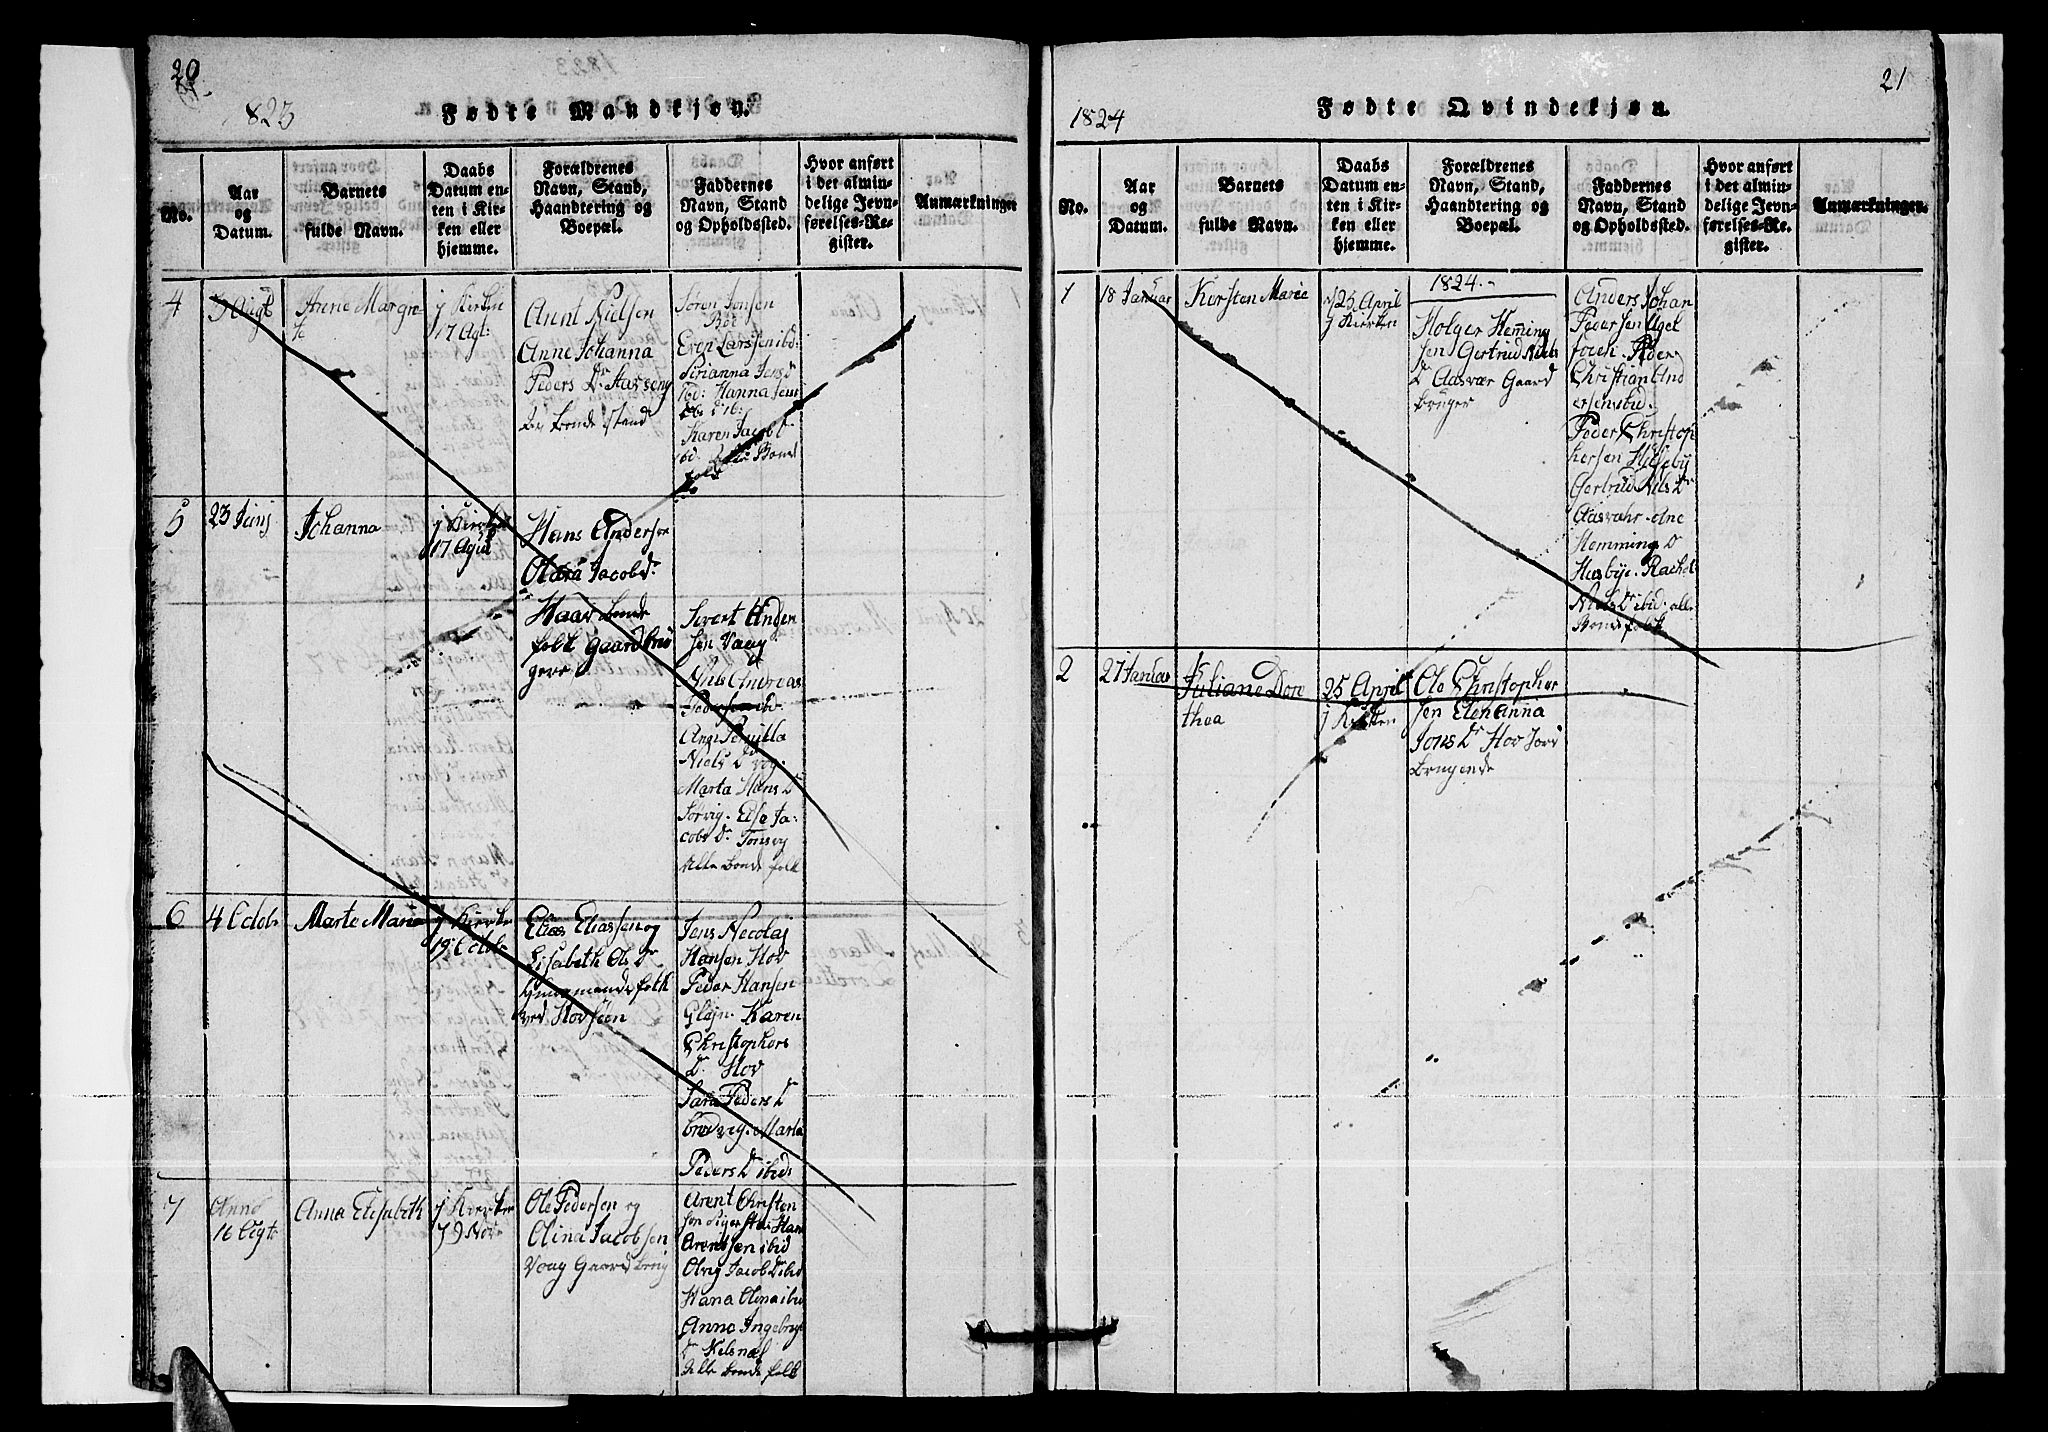 20
1823
Fødte Mandkjøn.
No.
Aar
og
Datum.
Barnets
fulde Navn.
Daabs
Datum en-
ten i Kir-
ken eller
hjemme.
Forældrenes
Navn, Stand,
Haandtering og
Boepæl.
Faddernes
Navn, Stand
og Opholdssted.
Hvor anført
i det almin-
delige Jevn-
førelses-Re-
gister.
Anmærkninger
4
Anne Margre
te
j Kirken
17 Agt:
Arnt Nielsen
Anne Johanna
Peders Dr
bonde stand
Sören Jensen
Even Larssen ibd:
Karen Jacob
5
23 Junj
Johanna
17 Agst
Hans Andersen
Olava Jacobdr
Haav bonde
folk gaardbru
gere
Sivert Ander
sen Vaag
Nils Andreas
Pedersen ibd.
Niels Dr
Marta Hans Dr
Sørvig. Else Ja-
cobs Dr. Tonvig
Alle bonde folk
6
4 Octobr
Marte Marie
19 Octobr
Elias Eliassen og
Elisabeth Ols Dr
ved Hov Søen
Jens Necolaj
Hansen Hov
Peder Hansen
Glejn. Karen
Christophers
Dr. Hov
Sara Peders Dr
Marta
Peders Dr ibid:
7
Anno
16 Agt:
Anna Elisabeth
j Kierken
Ole Pedersen og
Olina Jacobsen
Vaag Gaard brug
Arent Christen
Arentsen ibid
Oleg Jacob Dr ibid
Hana Olena ibid
Anne Ingebrigt
Dr Kelsnæs
Alle bonde folk
21
1824
Fødte Qvindekjøn.
No.
Aar
og
Datum.
Barnets
fulde Navn.
Daabs
Datum en-
ten i Kir-
ken eller
hjemme.
Forældrenes
Navn, Stand,
Haandtering og
Boepæl.
Faddernes
Navn, Stand
og Opholdssted.
Hvor anført
i det almin-
delige Jevn-
førelses-Re-
gister.
Anmærkninger.
1
18 Januar
Kersten Marie
25 April
j Kierken
1824.-
Holger Heming
sen Gertrud Niels
Dr Aasvær Gaard
bruger
Anders Johan
Pedersen
Peder
Christian And
ersen ibid.
Peder Christop
hersen Husby
Gertrud Nils Dr
Aasvahr. Ane
Hemming Dr
Husbye. Rachel
Niels Dr ibid. alle
Bonde folk
2
27 Januar
Juliane Doro
thea
25 April
j Kierken
Ole Christopher
sen Elen Anna
Jons Dr Hov Jord
brugende